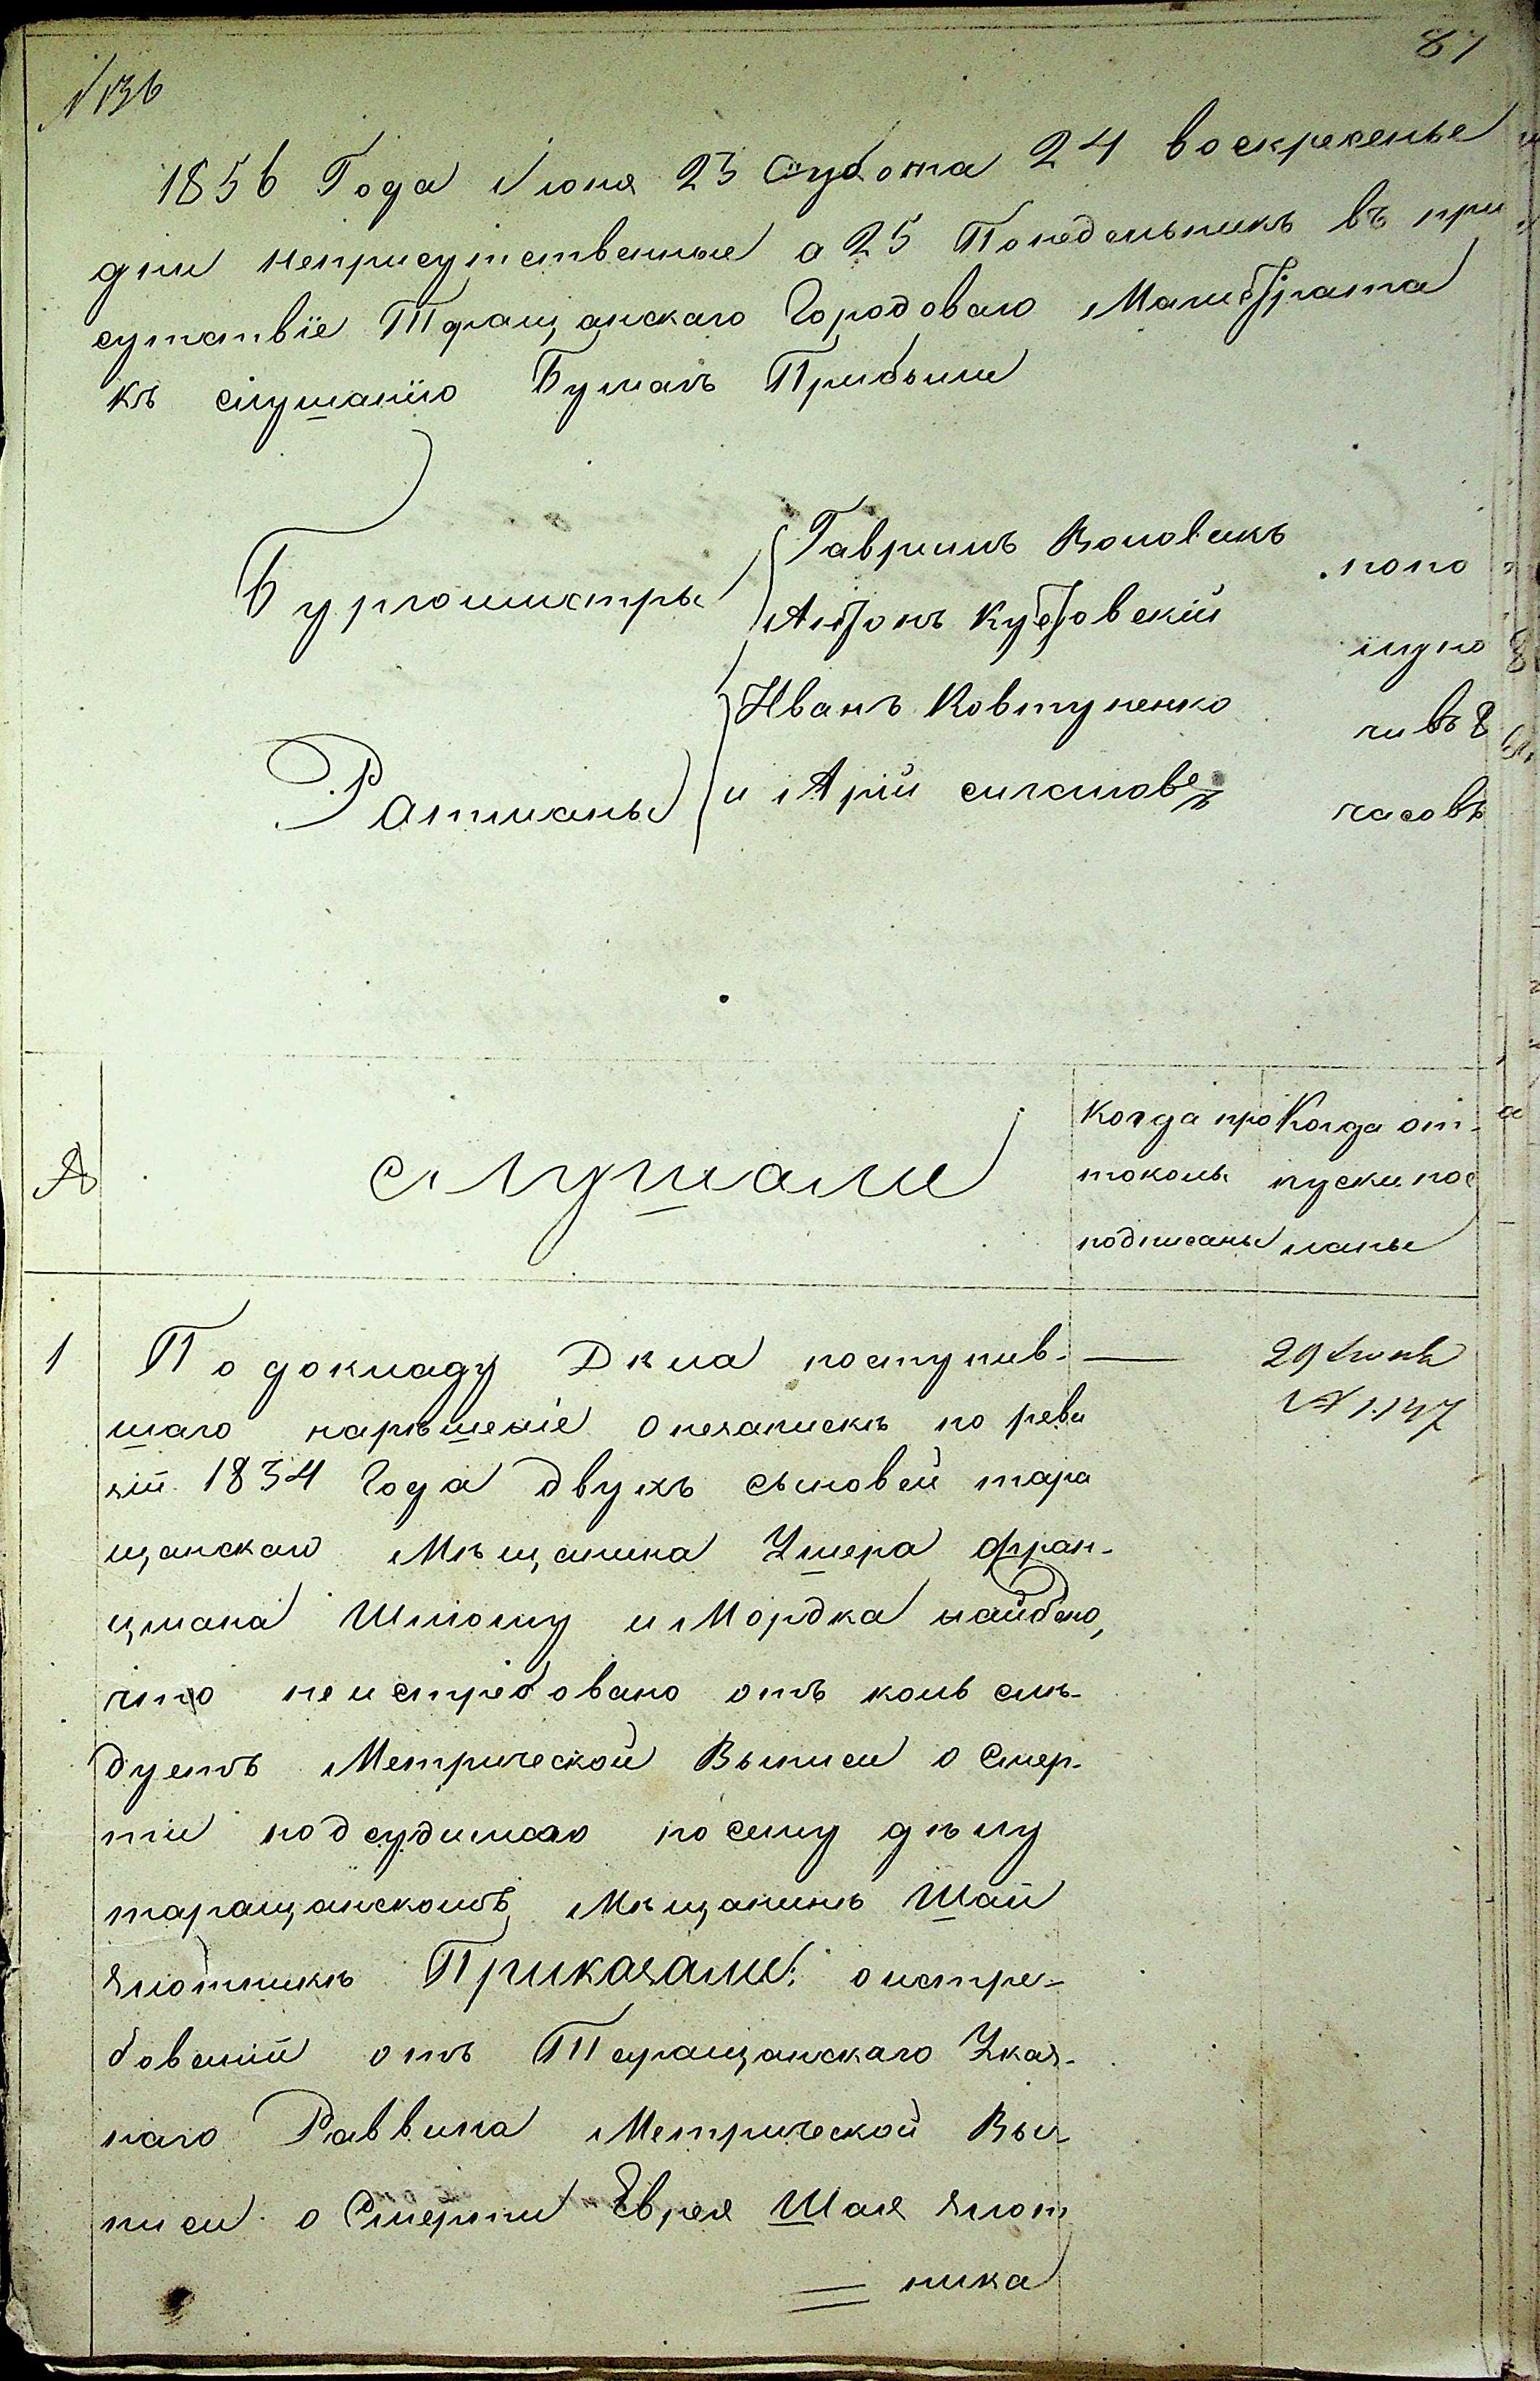 87
№ 136
1856 Года Июня 23 Субота 24 воскресенье
дни неприсутственные а 25 Понедельникъ въ при
сутствіе Таращанскаго Городоваго Магистрата
къ слушанію Бумагъ Прибыли
Бургомистры
Гавриилъ Воловикъ
Антонъ Кустовскій
Ратманы
Иванъ Ковтуненко
и Арій
попо
лудно
чивъ 8
часовъ
№
слушали
Когда про
токолы
подписаны
Когда от-
пуски пос
ланы
1
По докладу Дѣла поступив-
шаго нарѣшеніе о незапискѣ по реви
зій 1834 Года двухъ сыновей тара
щанскаго Мѣщанина Ушера Фран-
цмана Шлёму и Мордка найдено,
что не истребовано отъ коль слѣ-
дуетъ Метрической Выписи о Смер-
ти подсудимаго по сему дѣлу
таращанскомъ Мѣщанинъ Шай
Злотникъ Приказали: о истре-
бованій отъ Таращанскаго Указ-
наго Раввина Метрической Вы-
писи о Смерти Еврея Шая Злот
ника
29 Июня
№ 1147